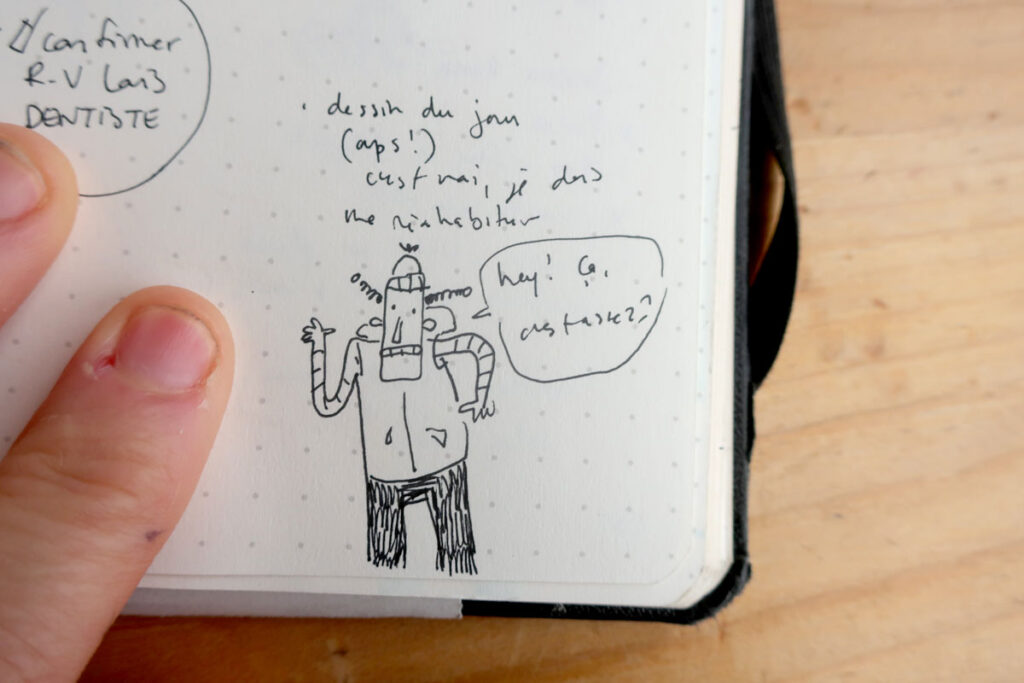 confirmer
R-V Loïs
DENTISTE
dessin du jour
(aps!)
c'est vrai, je dois
me réhabituer
hey! Ça,
c'est assez?